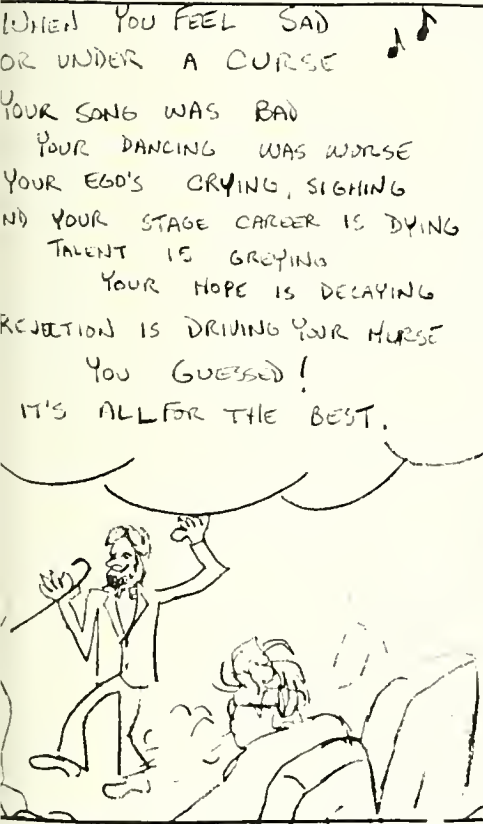 WHEN YOU FEEL SAD
OR UNDER A CURSE
YOUR SONG WAS BAD
YOUR DANCING WAS WORSE
YOUR EGO'S CRYING, SIGHING
ND YOUR STAGE CAREER IS DYING
TALENT IS GREYING
YOUR HOPE IS DECAYING
REJECTION IS DRIVING YOUR HURSE
YOU GUESSED!
IT'S ALL FOR THE BEST.